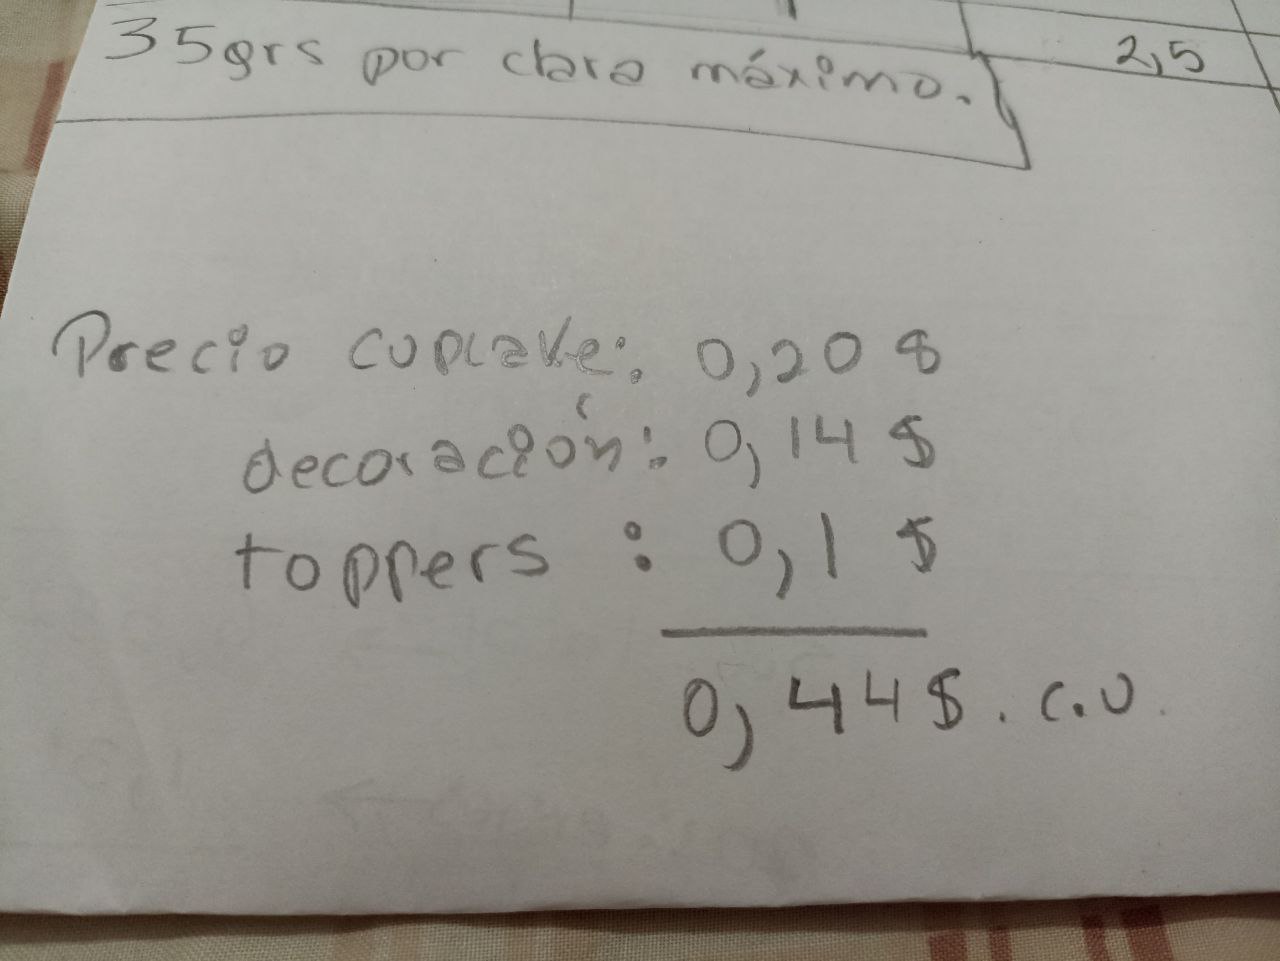 35grs por clara máximo.
2,5
Precio cupcake: 0,20 $
decoración: 0,14 $
toppers : 0,1 $
0,44$. c.u.